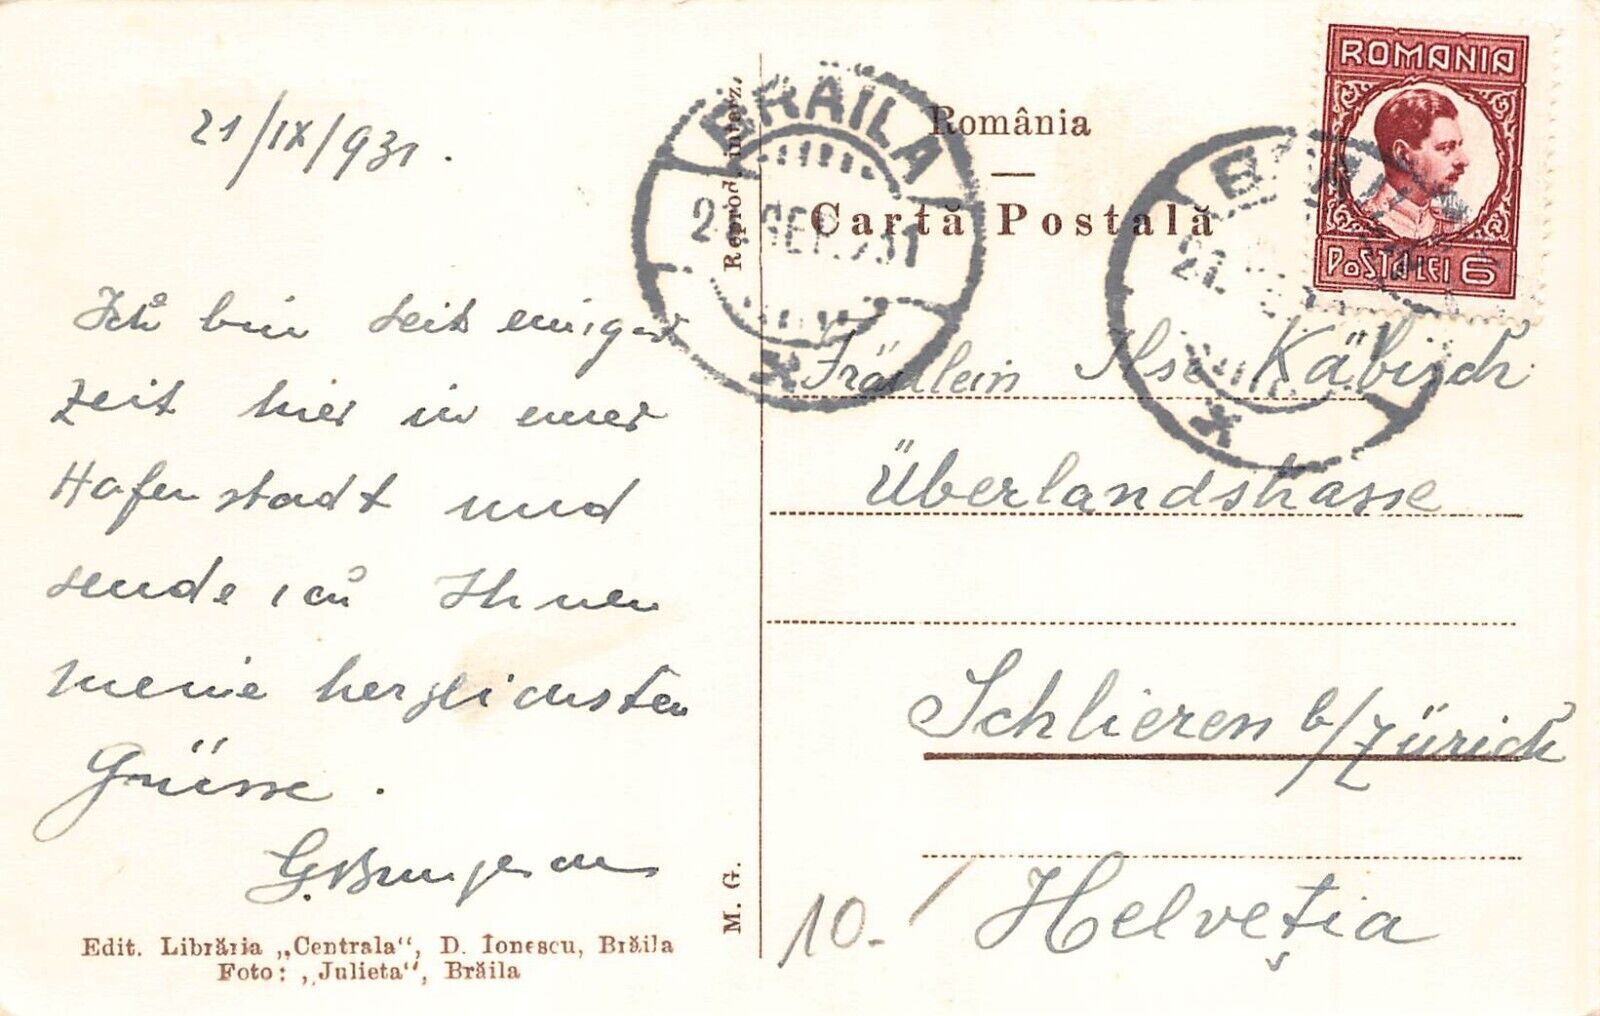 21/IX/931.
Ich bin seit einiger
Zeit hier in einer
Hafenstadt und
sende ich Ihnen
meine herzlichsten
Grüsse.
Edit. Librăria „Centrala“, D. Ionescu, Brăila
Foto: „Julieta“, Brăila
Reprod. interz.
M. G.
BRAILA
România
Cartă Postală
ROMANIA
POSTA LEI 6
BRAILA
21.
Fräulein Ilse Käbisch
Überlandstrasse
Schlieren b/Zürich
Helveția
10.-